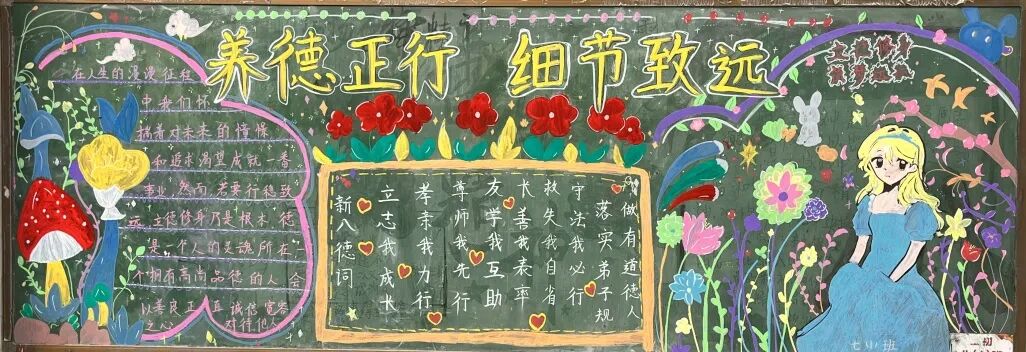 养德正行 细节致远
在人生的漫漫征程
中我们怀
揣着对未来的憧憬
和追求渴望成就一番
事业,然而,若要行稳致
远,立德修身乃是根本,德
是一个人的灵魂所在,
个拥有高尚品德的人,会
以善良正直诚信宽容
之心 对待他人
新八德词
立志我成长
孝亲我力行
尊师我先行
友学我互助
长善我表率
救失我自省
守法我必行
落实弟子规
做有道德人
立德修身